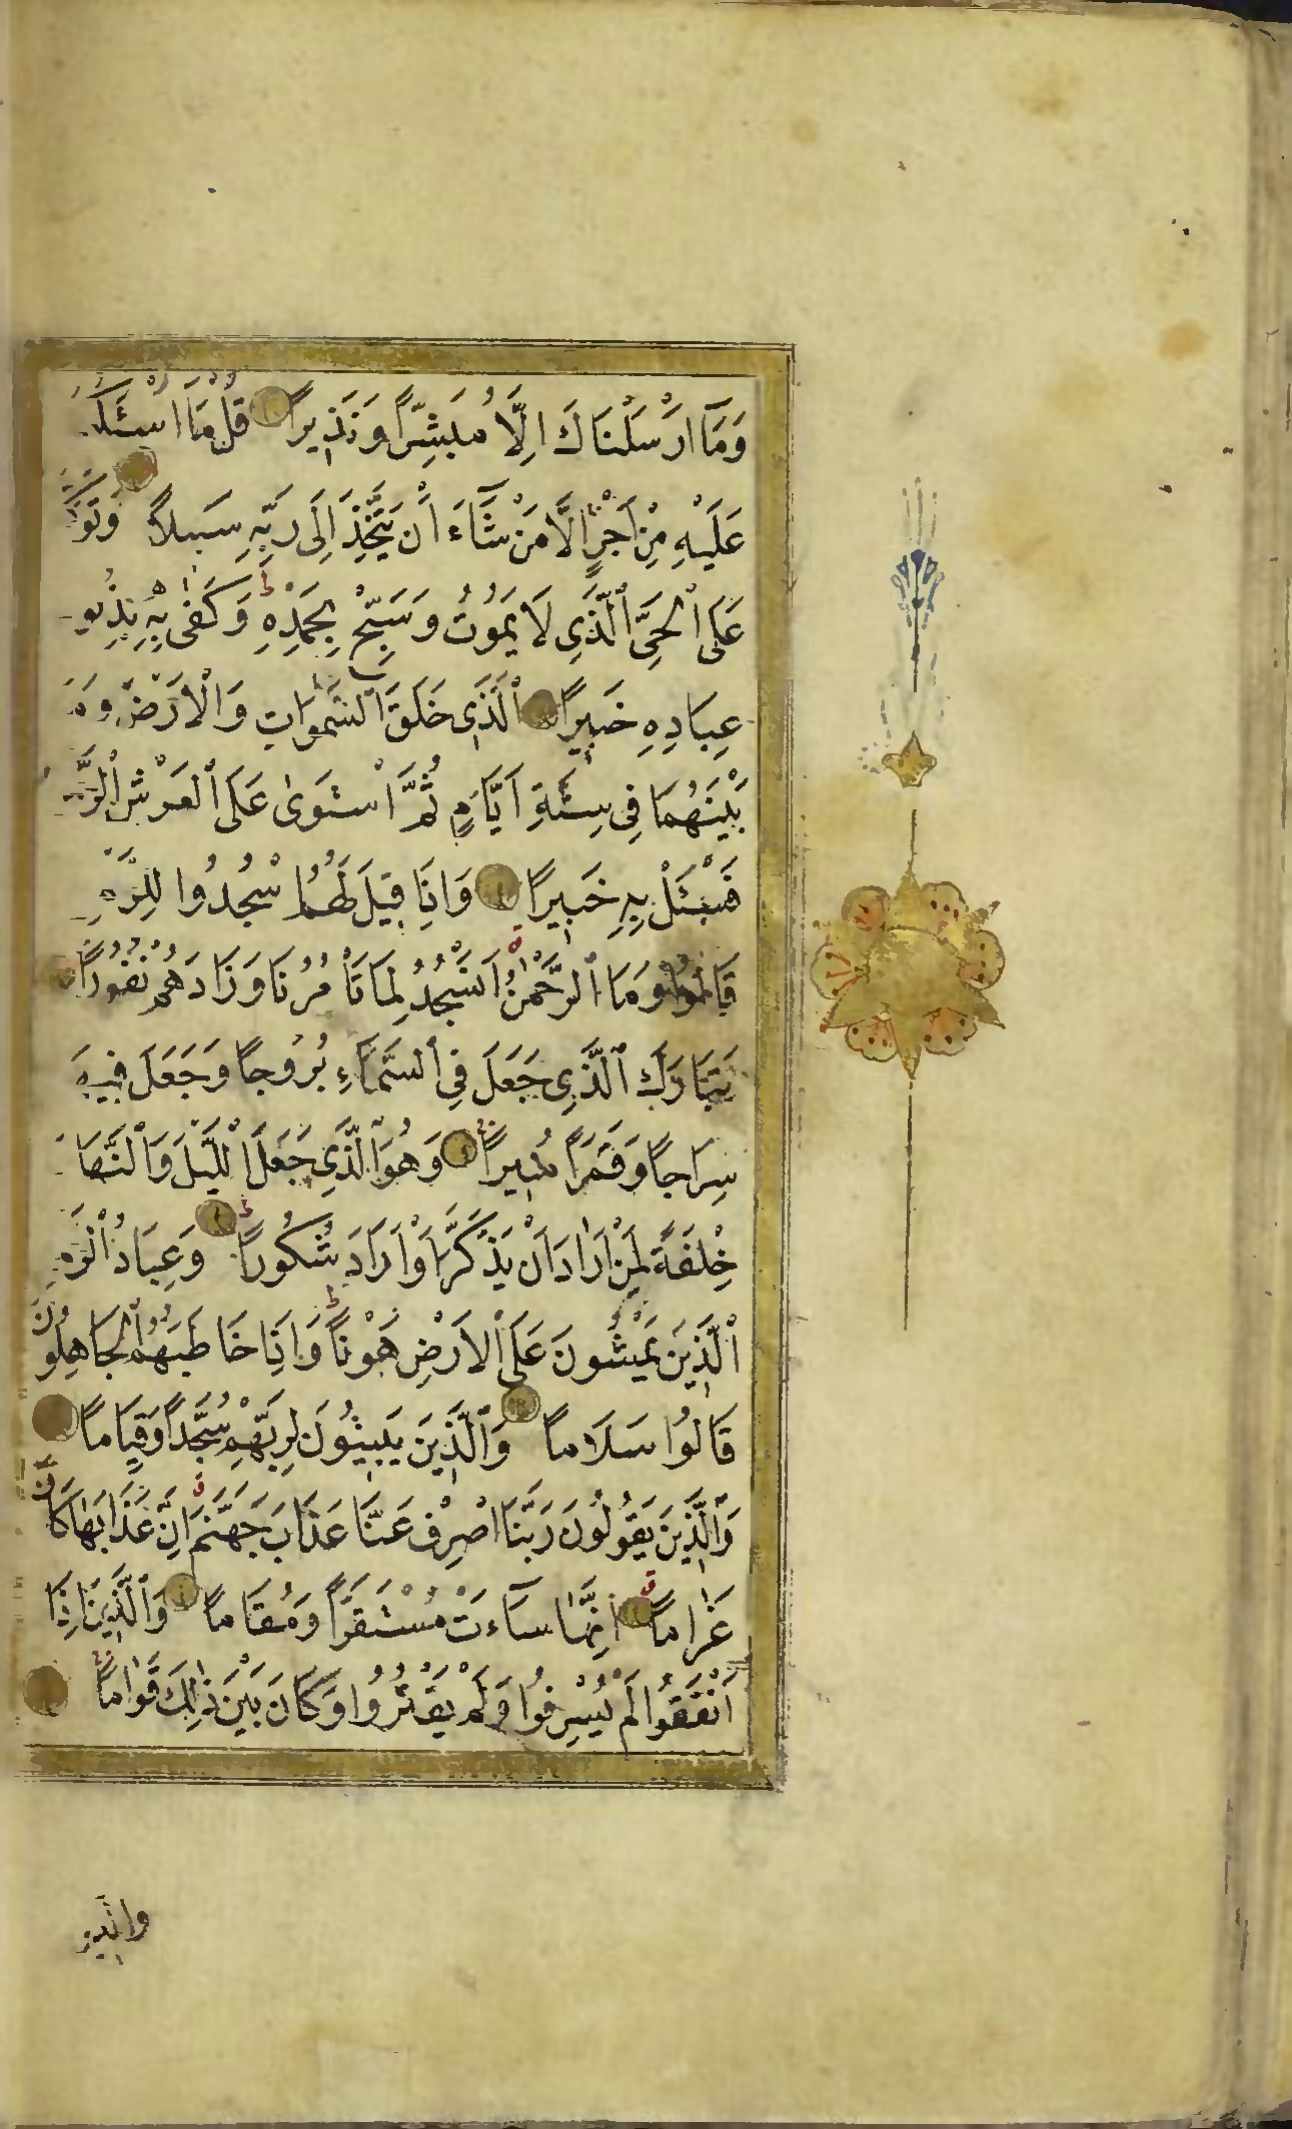 وَمَآ اَرْسَلْنَاكَ اِلَّا مُبَشِّرًا وَنَذِيرًا قُلْ مَآ اَسْئَلُكُمْ
عَلَيْهِ مِنْ اَجْرٍ اِلَّا مَنْ شَآءَ اَنْ يَتَّخِذَ اِلَى رَبِّهِ سَبِيلاً وَتَوَكَّلْ
عَلَى ٱلْحَىِّ ٱلَّذِى لَا يَمُوتُ وَسَبِّحْ بِحَمْدِهِ وَكَفٰى بِهِ بِذُنُوبِ
عِبَادِهِ خَبِيرًا ٱلَّذِى خَلَقَ ٱلسَّمٰوَاتِ وَالْاَرْضَ وَمَا
بَيْنَهُمَا فِى سِتَّةِ اَيَّامٍ ثُمَّ اسْتَوٰى عَلَى ٱلْعَرْشِ ٱلرَّحْمٰنُ
فَسْئَلْ بِهِ خَبِيرًا وَاِذَا قِيلَ لَهُمُ اسْجُدُوا لِلرَّحْمٰنِ
قَالُوا وَمَا ٱلرَّحْمٰنُ اَنَسْجُدُ لِمَا تَأْمُرُنَا وَزَادَهُمْ نُفُورًا
تَبَارَكَ ٱلَّذِى جَعَلَ فِى ٱلسَّمَآءِ بُرُوجًا وَجَعَلَ فِيهَا
سِرَاجًا وَقَمَرًا مُنِيرًا وَهُوَ ٱلَّذِى جَعَلَ ٱللَّيْلَ وَٱلنَّهَارَ
خِلْفَةً لِمَنْ اَرَادَ اَنْ يَذَّكَّرَ اَوْ اَرَادَ شُكُورًا وَعِبَادُ ٱلرَّحْمٰنِ
ٱلَّذِينَ يَمْشُونَ عَلَى ٱلْاَرْضِ هَوْنًا وَاِذَا خَاطَبَهُمُ ٱلْجَاهِلُونَ
قَالُوا سَلَامًا وَٱلَّذِينَ يَبِيتُونَ لِرَبِّهِمْ سُجَّدًا وَقِيَامًا
وَٱلَّذِينَ يَقُولُونَ رَبَّنَا اصْرِفْ عَنَّا عَذَابَ جَهَنَّمَ اِنَّ عَذَابَهَا كَانَ
غَرَامًا اِنَّهَا سَآءَتْ مُسْتَقَرًّا وَمُقَامًا وَٱلَّذِينَ اِذَا
اَنْفَقُوا لَمْ يُسْرِفُوا وَلَمْ يَقْتُرُوا وَكَانَ بَيْنَ ذٰلِكَ قَوَامًا
والذين